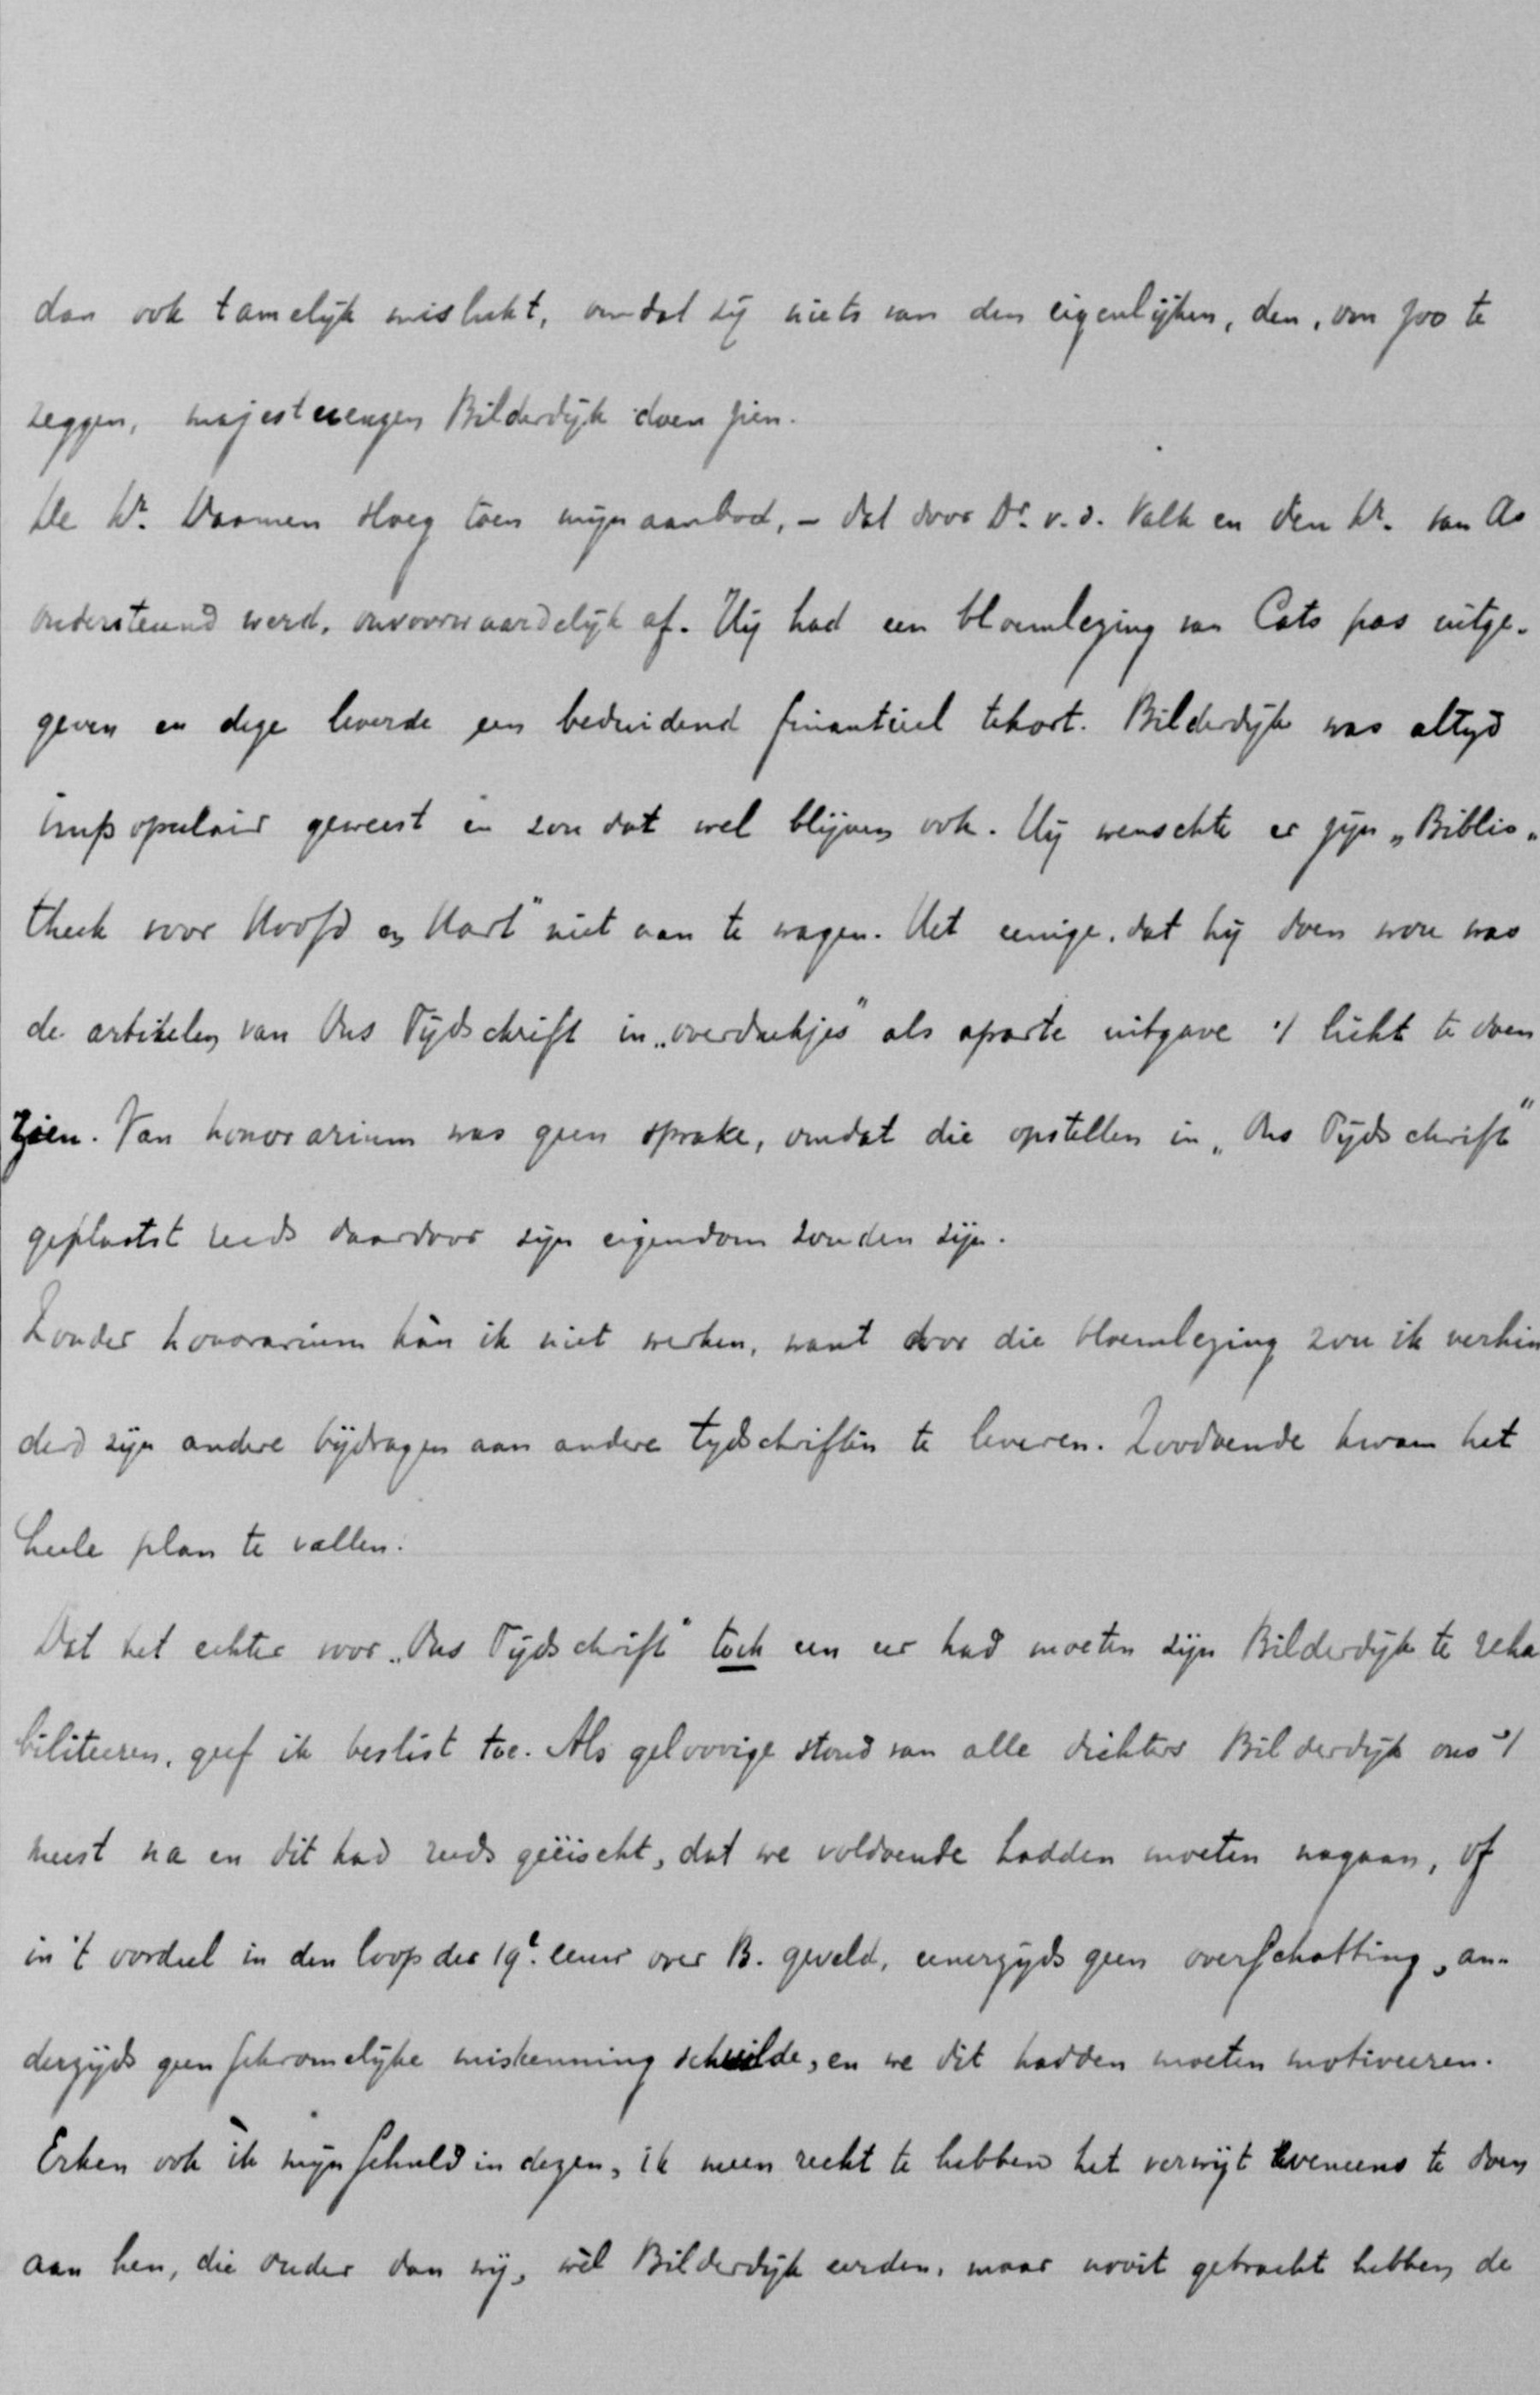 dan ook tamelijk mislukt, omdat zij niets van den eigenlijken, den, om zoo te
zeggen, majestueuzen Bilderdijk doen zien.
De Hr. Daamen sloeg toen mijn aanbod, – dat door Dr. v. d. Valk en den Hr. van As
ondersteund werd, onvoorwaardelijk af. Hij had een bloemlezing van Cats pas uitge-
geven en deze leverde een beduidend finantieel tekort. Bilderdijk was altyd
impopulair geweest en zou dat wel blijven ook. Hij wenschte er zijn „Biblio-
theek voor Hoofd en Hart" niet aan te wagen. Het eenige, dat hij doen wou was
de artikelen van Ons Tijdschrift in „overdrukjes" als aparte uitgave 't licht te doen
zien. Van honorarium was geen sprake, omdat die opstellen in „Ons Tijdschrift"
geplaatst reeds daardoor zijn eigendom zouden zijn.
Zonder honorarium kàn ik niet werken, want door die bloemlezing zou ik verhin
derd zijn andere bijdragen aan andere tydschriften te leveren. Zoodoende kwam het
heele plan te vallen.
Dat het echter voor „Ons Tijdschrift" toch een eer had moeten zijn Bilderdijk te reha
biliteeren, geef ik beslist toe. Als geloovige stond van alle dichters Bilderdijk ons 't
meest na en dit had reeds geëischt, dat we voldoende hadden moeten nagaan, of
in 't oordeel in den loop der 19e. eeuw over B. geveld, eenerzijds geen overschatting, an-
derzijds geen schromelijke miskenning schuilde, en we dit hadden moeten motiveeren.
Erken ook ìk mijn schuld in dezen, ik meen recht te hebben het verwijt eveneens te doen
aan hen, die ouder dan wij, wèl Bilderdijk eerden, maar nooit getracht hebben de